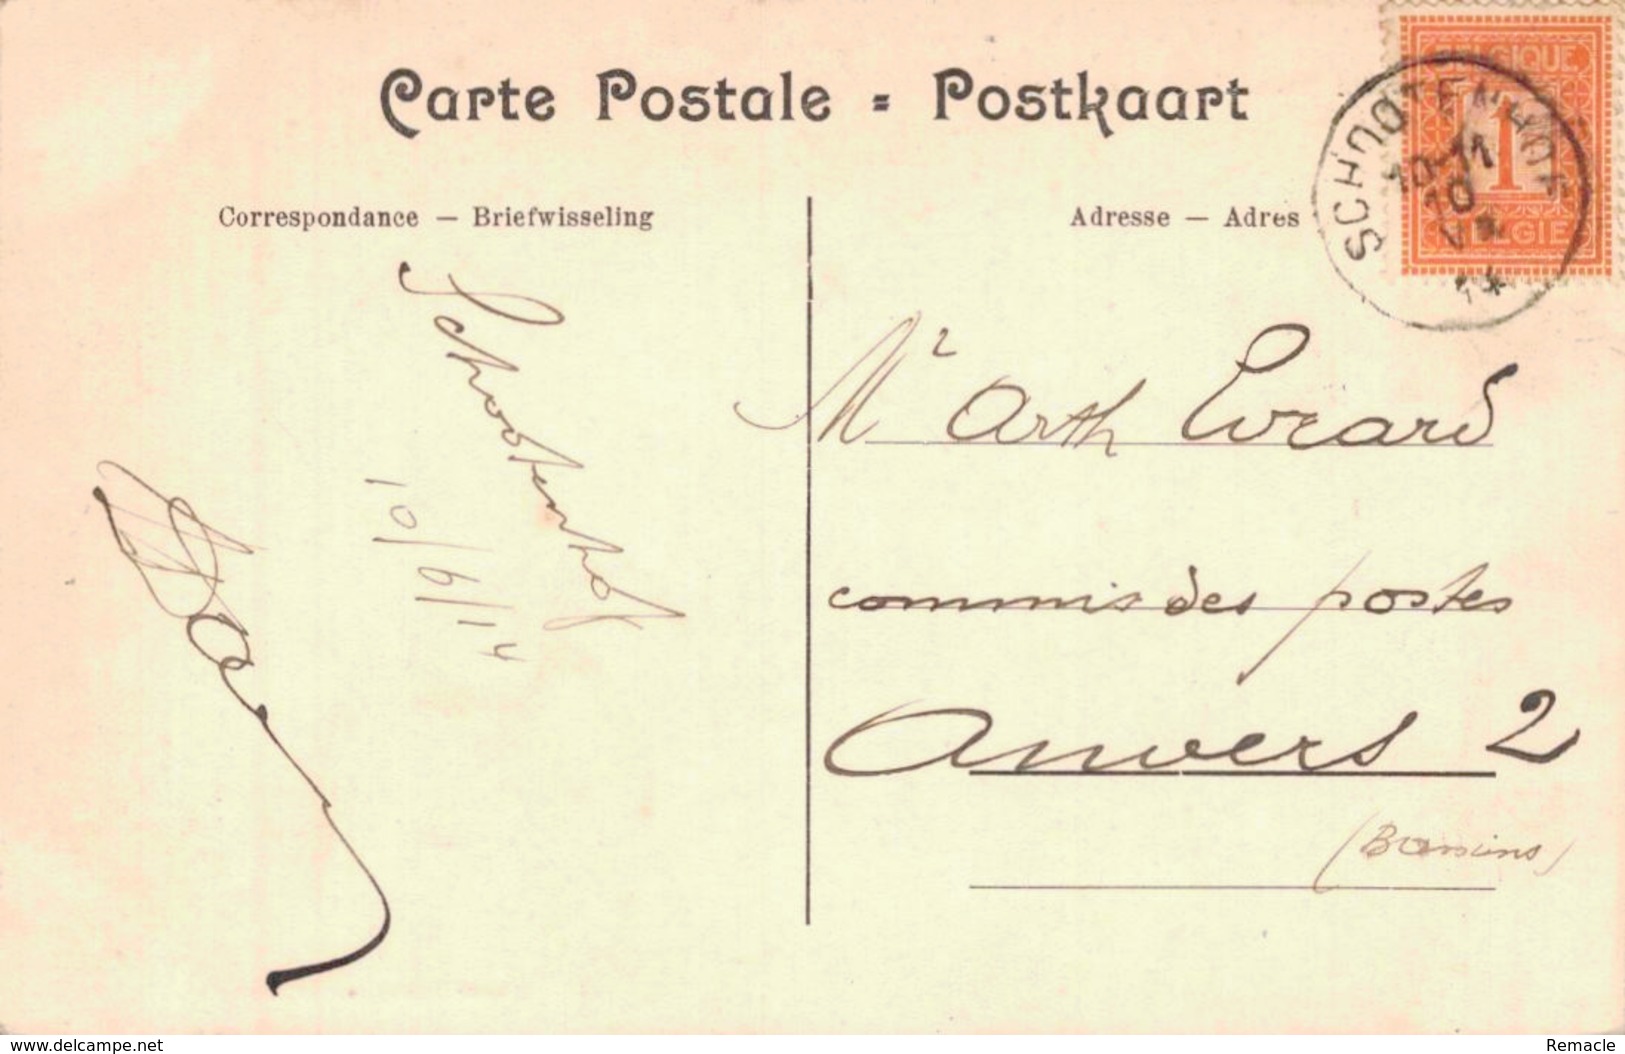 Carte Postale = Postkaart
Correspondance — Briefwisseling
Adresse — Adres
BELGIQUE
1
BELGIE
SCHOOTENHOF
10-11
10
14
Schootenhof
10/6/14
Mr Arth Evrard
commis des postes
Anvers 2
(Bassins)
www.delcampe.net
Remacle